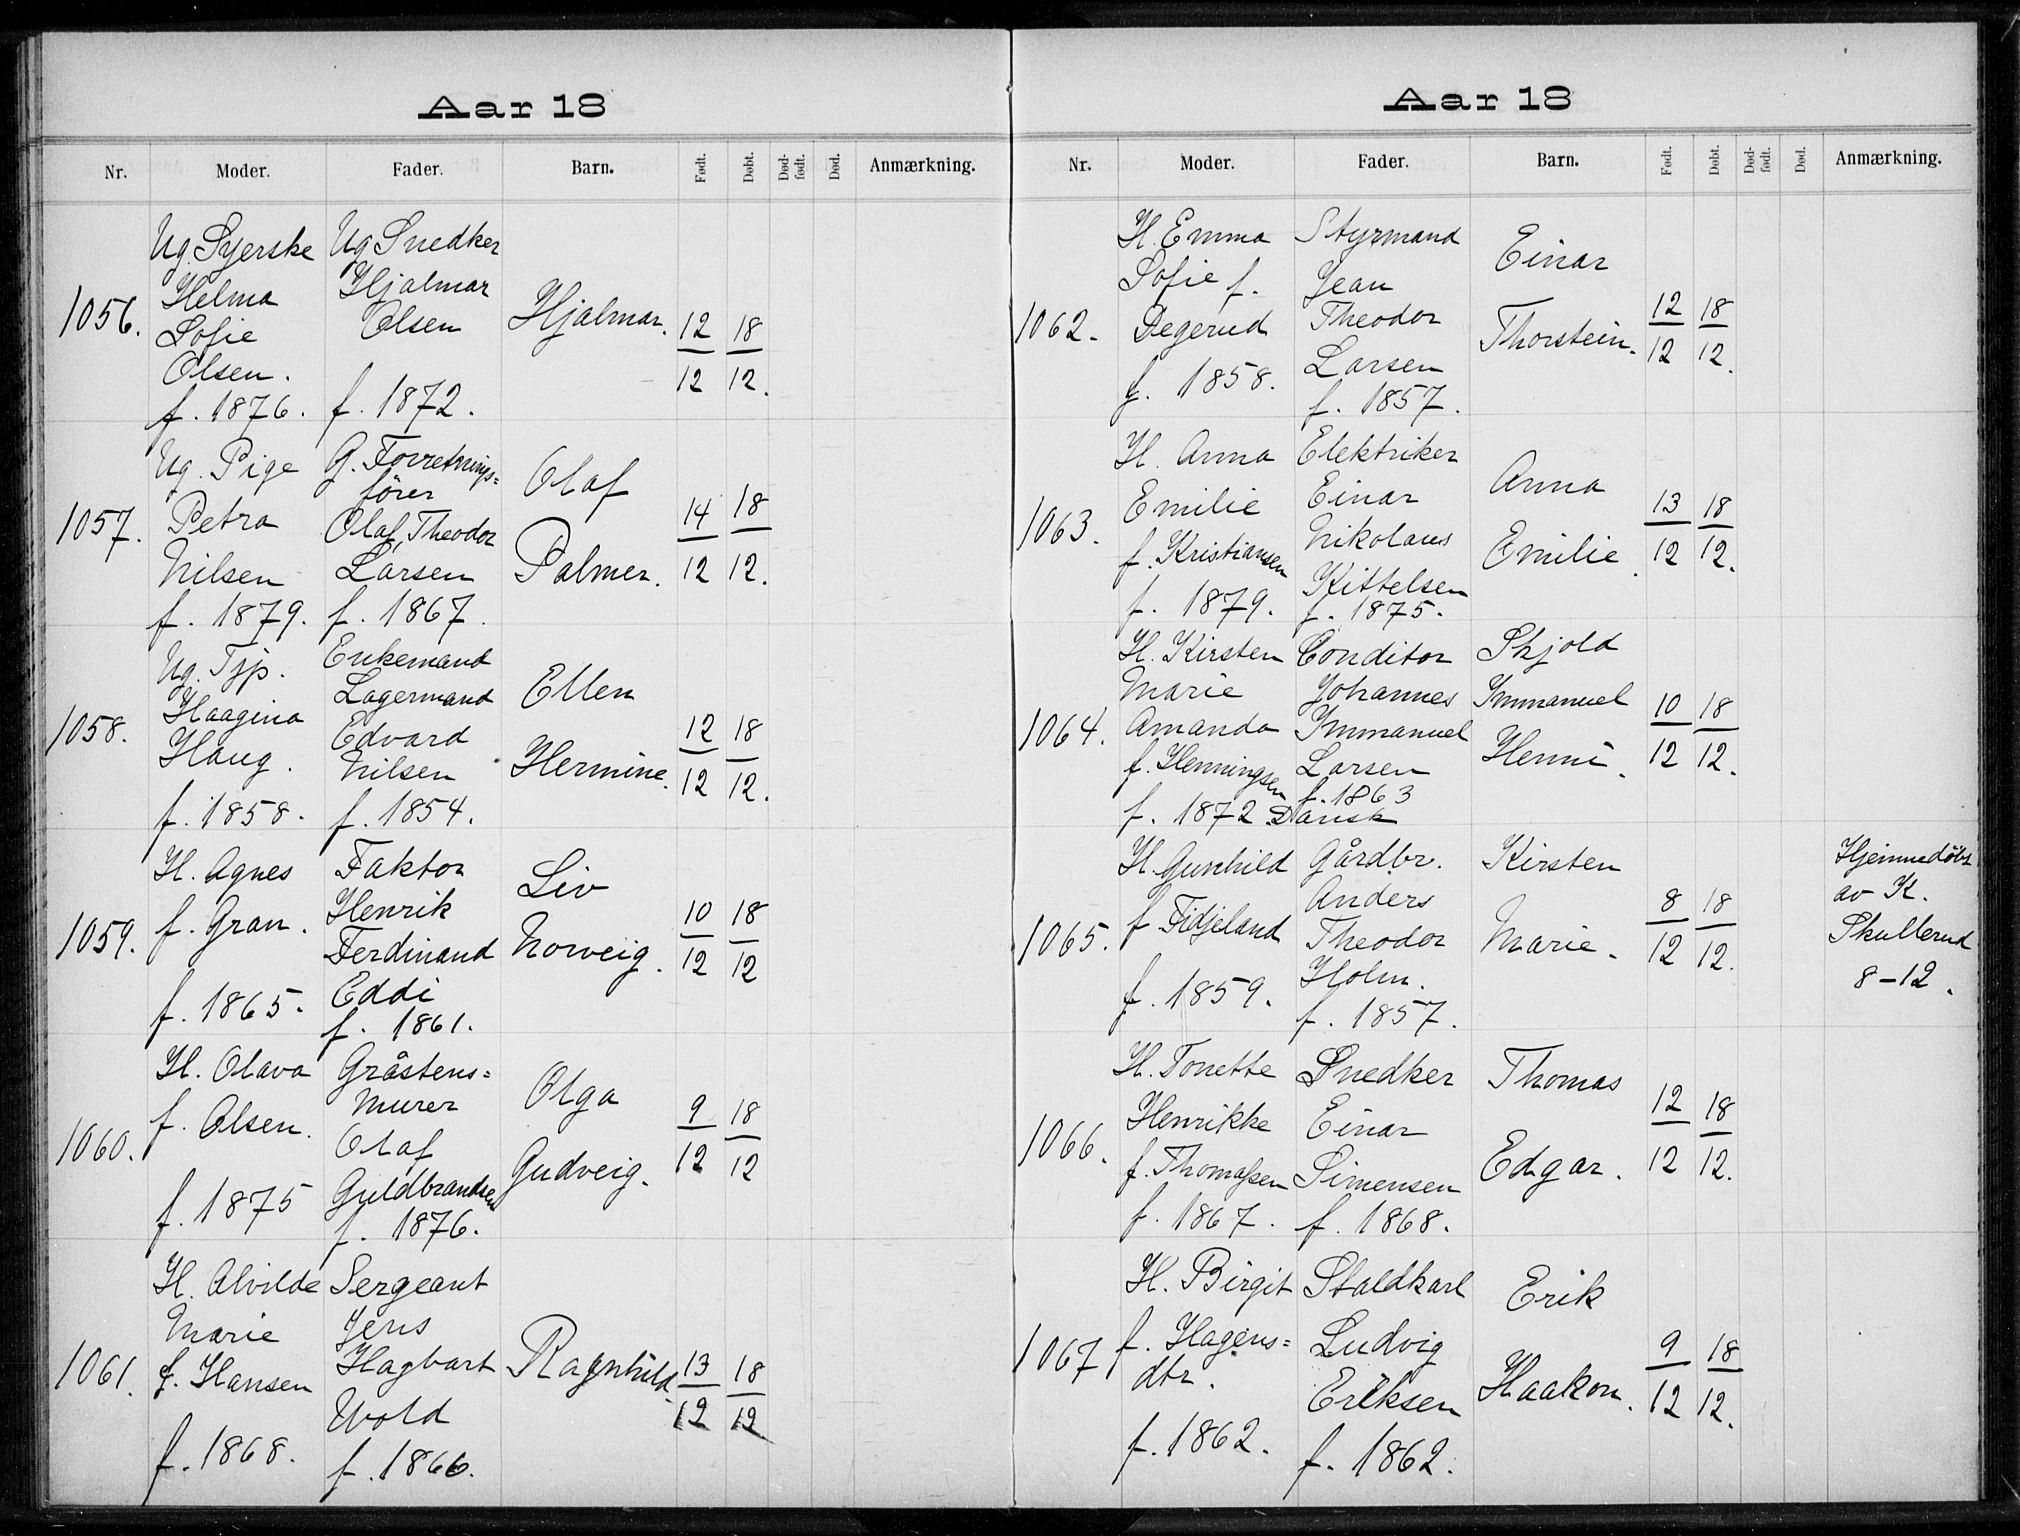 Aar 18
Nr. Moder. Fader. Barn. Født. Døbt. Død-født. Død. Anmærkning.
1056.
Ug. Syerske
Helma
Sofie
Olsen.
f. 1876.
Ug. Snedker
Hjalmar
Olsen
f. 1872.
Hjalmar.
12/12
18/12.
1057.
Ug. Pige
Petra
Nilsen
f. 1879.
G. Forretnings=
fører
Olaf Theodor
Larsen
f. 1867.
Olaf
Palmer.
14/12
18/12.
1058.
Ug. Tjp.
Haagina
Haug.
f. 1858.
Enkemand
Lagermand
Edvard
Nilsen
f. 1854.
Ellen
Hermine.
12/12
18/12.
1059.
H. Agnes
f. Gran.
f. 1865.
Faktor
Henrik
Ferdinand
Eddi
f. 1861.
Liv
Norveig.
10/12
18/12
1060.
H. Olava
f. Olsen.
f. 1875
Gråstens=
murer
Olaf
Guldbrandsen
f. 1876.
Olga
Gudveig.
9/12
18/12
1061.
H. Alvilde
Marie
f. Hansen
f. 1868.
Sergeant
Jens
Hagbart
Wold
f. 1866.
Ragnhild
13/12
18/12
Aar 18
Nr. Moder. Fader. Barn. Født. Døbt. Død-født. Død. Anmærkning.
1062.
H. Emma
Sofie f.
Degerud
f. 1858.
Styrmand
Jean
Theodor
Larsen
f. 1857.
Einar
Thorstein.
12/12
18/12.
1063.
H. Anna
Emilie
f. Kristiansen
f. 1879.
Elektriker
Einar
Nikolaus
Kittelsen
f. 1875.
Anna
Emilie.
13/12
18/12.
1064.
H. Kirsten
Marie
Amanda
f. Henningsen
f. 1872 Dansk
Conditor
Johannes
Immanuel
Larsen
f. 1863
Skjold
Immanuel
Henni.
10/12
18/12.
1065.
H. Gunhild
f Fidjeland
f. 1859.
Gårdbr.
Anders
Theodor
Holm.
f. 1857.
Kirsten
Marie.
8/12
18/12.
Hjemmedøbt
av K.
Skullerud
8-12.
1066.
H. Tonette
Henrikke
f. Thomassen
f. 1867.
Snedker
Einar
Simensen
f. 1868.
Thomas
Edgar.
12/12
18/12.
1067
H. Birgit
f. Hagens=
dtr.
f. 1862.
Staldkarl
Ludvig
Eriksen
f. 1862.
Erik
Haakon.
9/12
18/12.